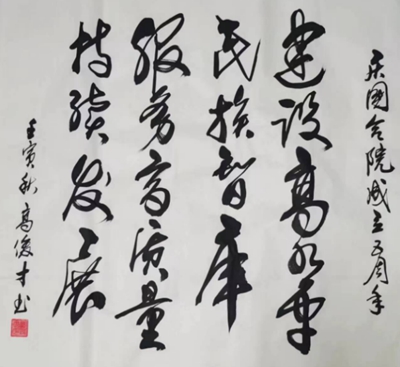 國合院成立五周年
建设高水平
民族智库
服务高质量
持续发展
壬寅秋 高俊才书